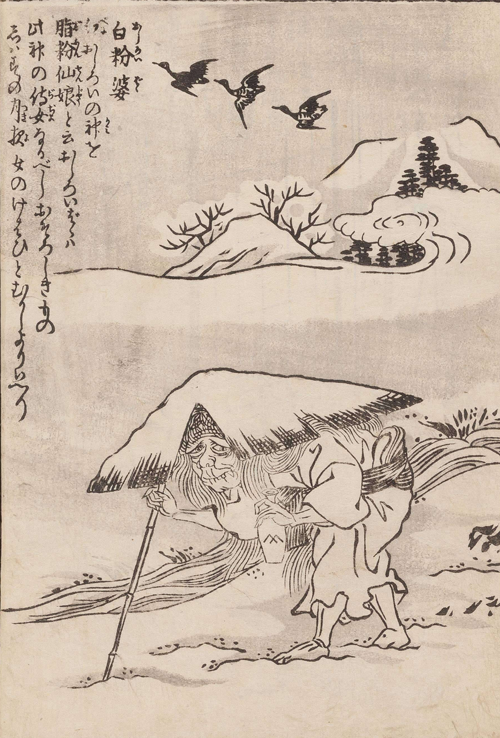 白粉婆
おしろいばゝ
紅おしろいの神を
脂粉仙娘と云おしろいばゝハ
此神の侍女なるべしおそろしきもの
しハすの月夜女のけはひとむかしよりいへり